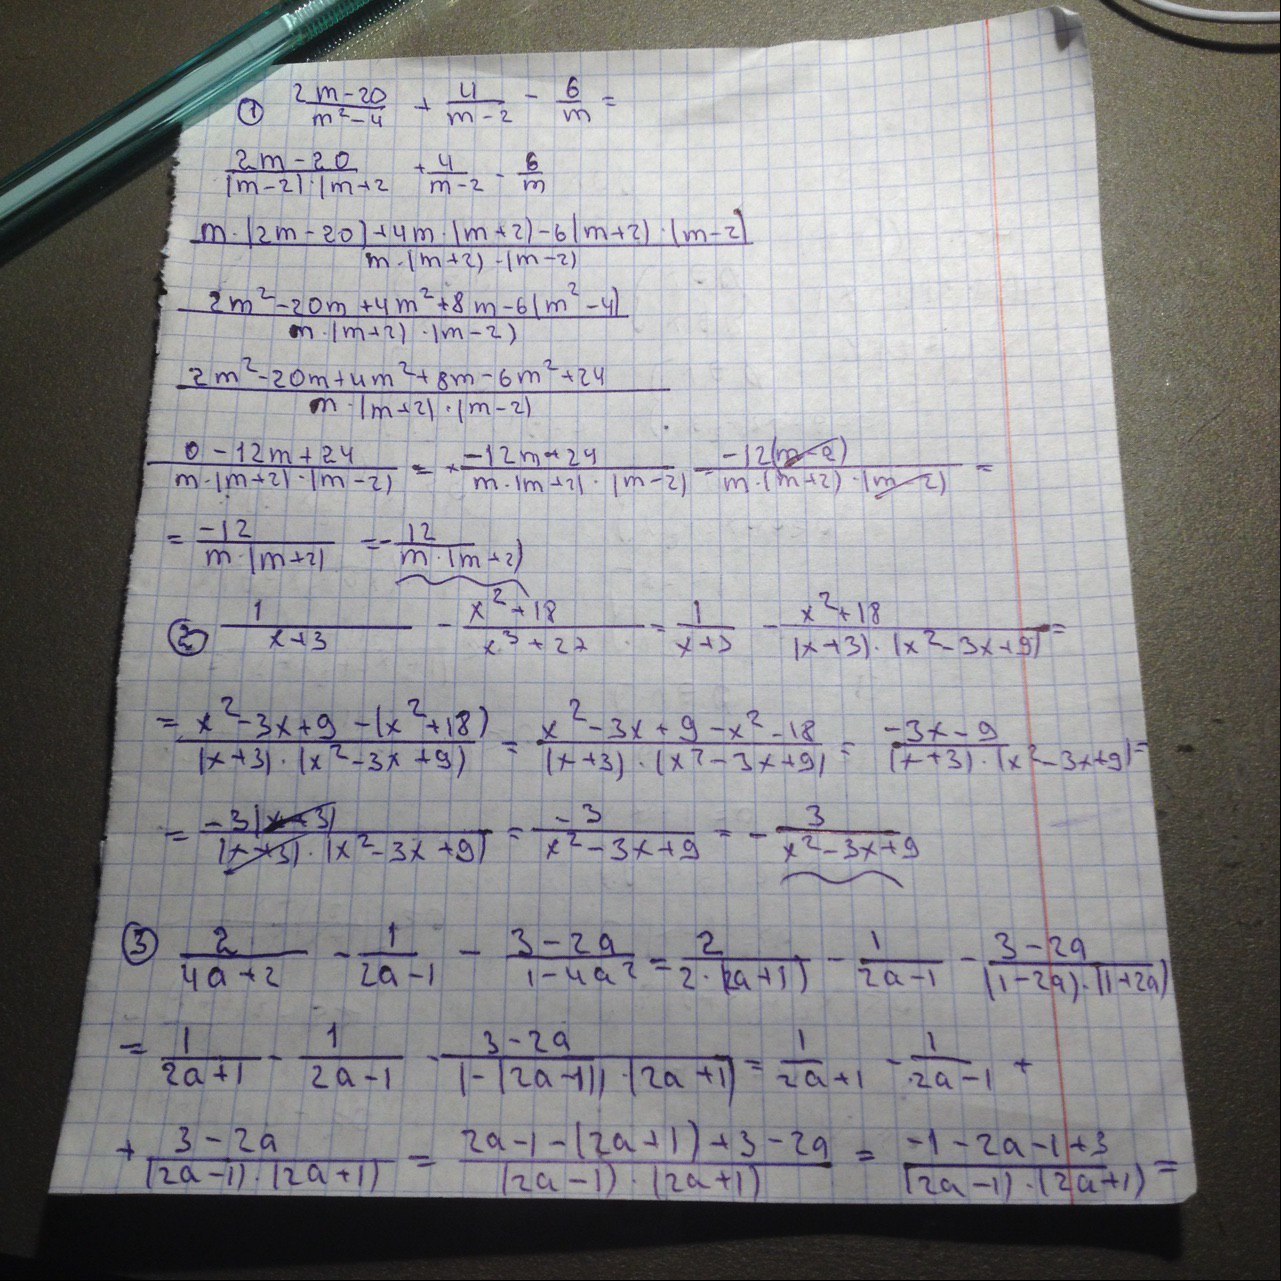 ① (2m-20)/(m²-4) + 4/(m-2) - 6/m =
(2m-20)/((m-2)·(m+2) + 4/(m-2) - 6/m
(m·(2m-20)+4m·(m+2)-6(m+2)·(m-2))/(m·(m+2)·(m-2))
(2m²-20m+4m²+8m-6(m²-4))/(m·(m+2)·(m-2))
(2m²-20m+4m²+8m-6m²+24)/(m·(m+2)·(m-2))
(0-12m+24)/(m·(m+2)·(m-2)) = (-12m+24)/(m·(m+2)·(m-2)) = (-12(m-2))/(m·(m+2)·(m-2)) =
= (-12)/(m·(m+2)) = - 12/(m·(m+2))
② 1/(x+3) - (x²+18)/(x³+27) = 1/(x+3) - (x²+18)/((x+3)·(x²-3x+9)) =
= (x²-3x+9-(x²+18))/((x+3)·(x²-3x+9)) = (x²-3x+9-x²-18)/((x+3)·(x²-3x+9)) = (-3x-9)/((x+3)·(x²-3x+9)) =
= (-3(x+3))/((x+3)·(x²-3x+9)) = (-3)/(x²-3x+9) = - 3/(x²-3x+9)
③ 2/(4a+2) - 1/(2a-1) - (3-2a)/(1-4a²) = 2/(2·(2a+1)) - 1/(2a-1) - (3-2a)/((1-2a)·(1+2a))
= 1/(2a+1) - 1/(2a-1) - (3-2a)/((-(2a-1))·(2a+1)) = 1/(2a+1) - 1/(2a-1) +
+ (3-2a)/((2a-1)·(2a+1)) = (2a-1-(2a+1)+3-2a)/((2a-1)·(2a+1)) = (-1-2a-1+3)/((2a-1)·(2a+1)) =